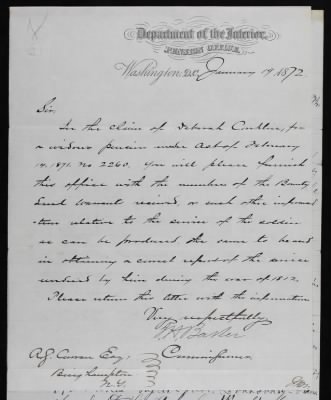 Department of the Interior,
PENSION OFFICE,
Washington, D.C., January 1872
Sir
In the claim of Deborah Conklin, for
a widows pension under Act of February
14, 1871, No 2260. You will please furnish
this office with the numbers of the Bounty
Land Warrant received, or such other informa
tion relative to the service of the soldier
as can be produced the same to be used
in obtaining a correct report of the service
rendered by him during the war of 1812.
Please return this letter with the information
Very respectfully
J H Baker
Commissioner
Curran Esq.
Binghampton
N.Y.